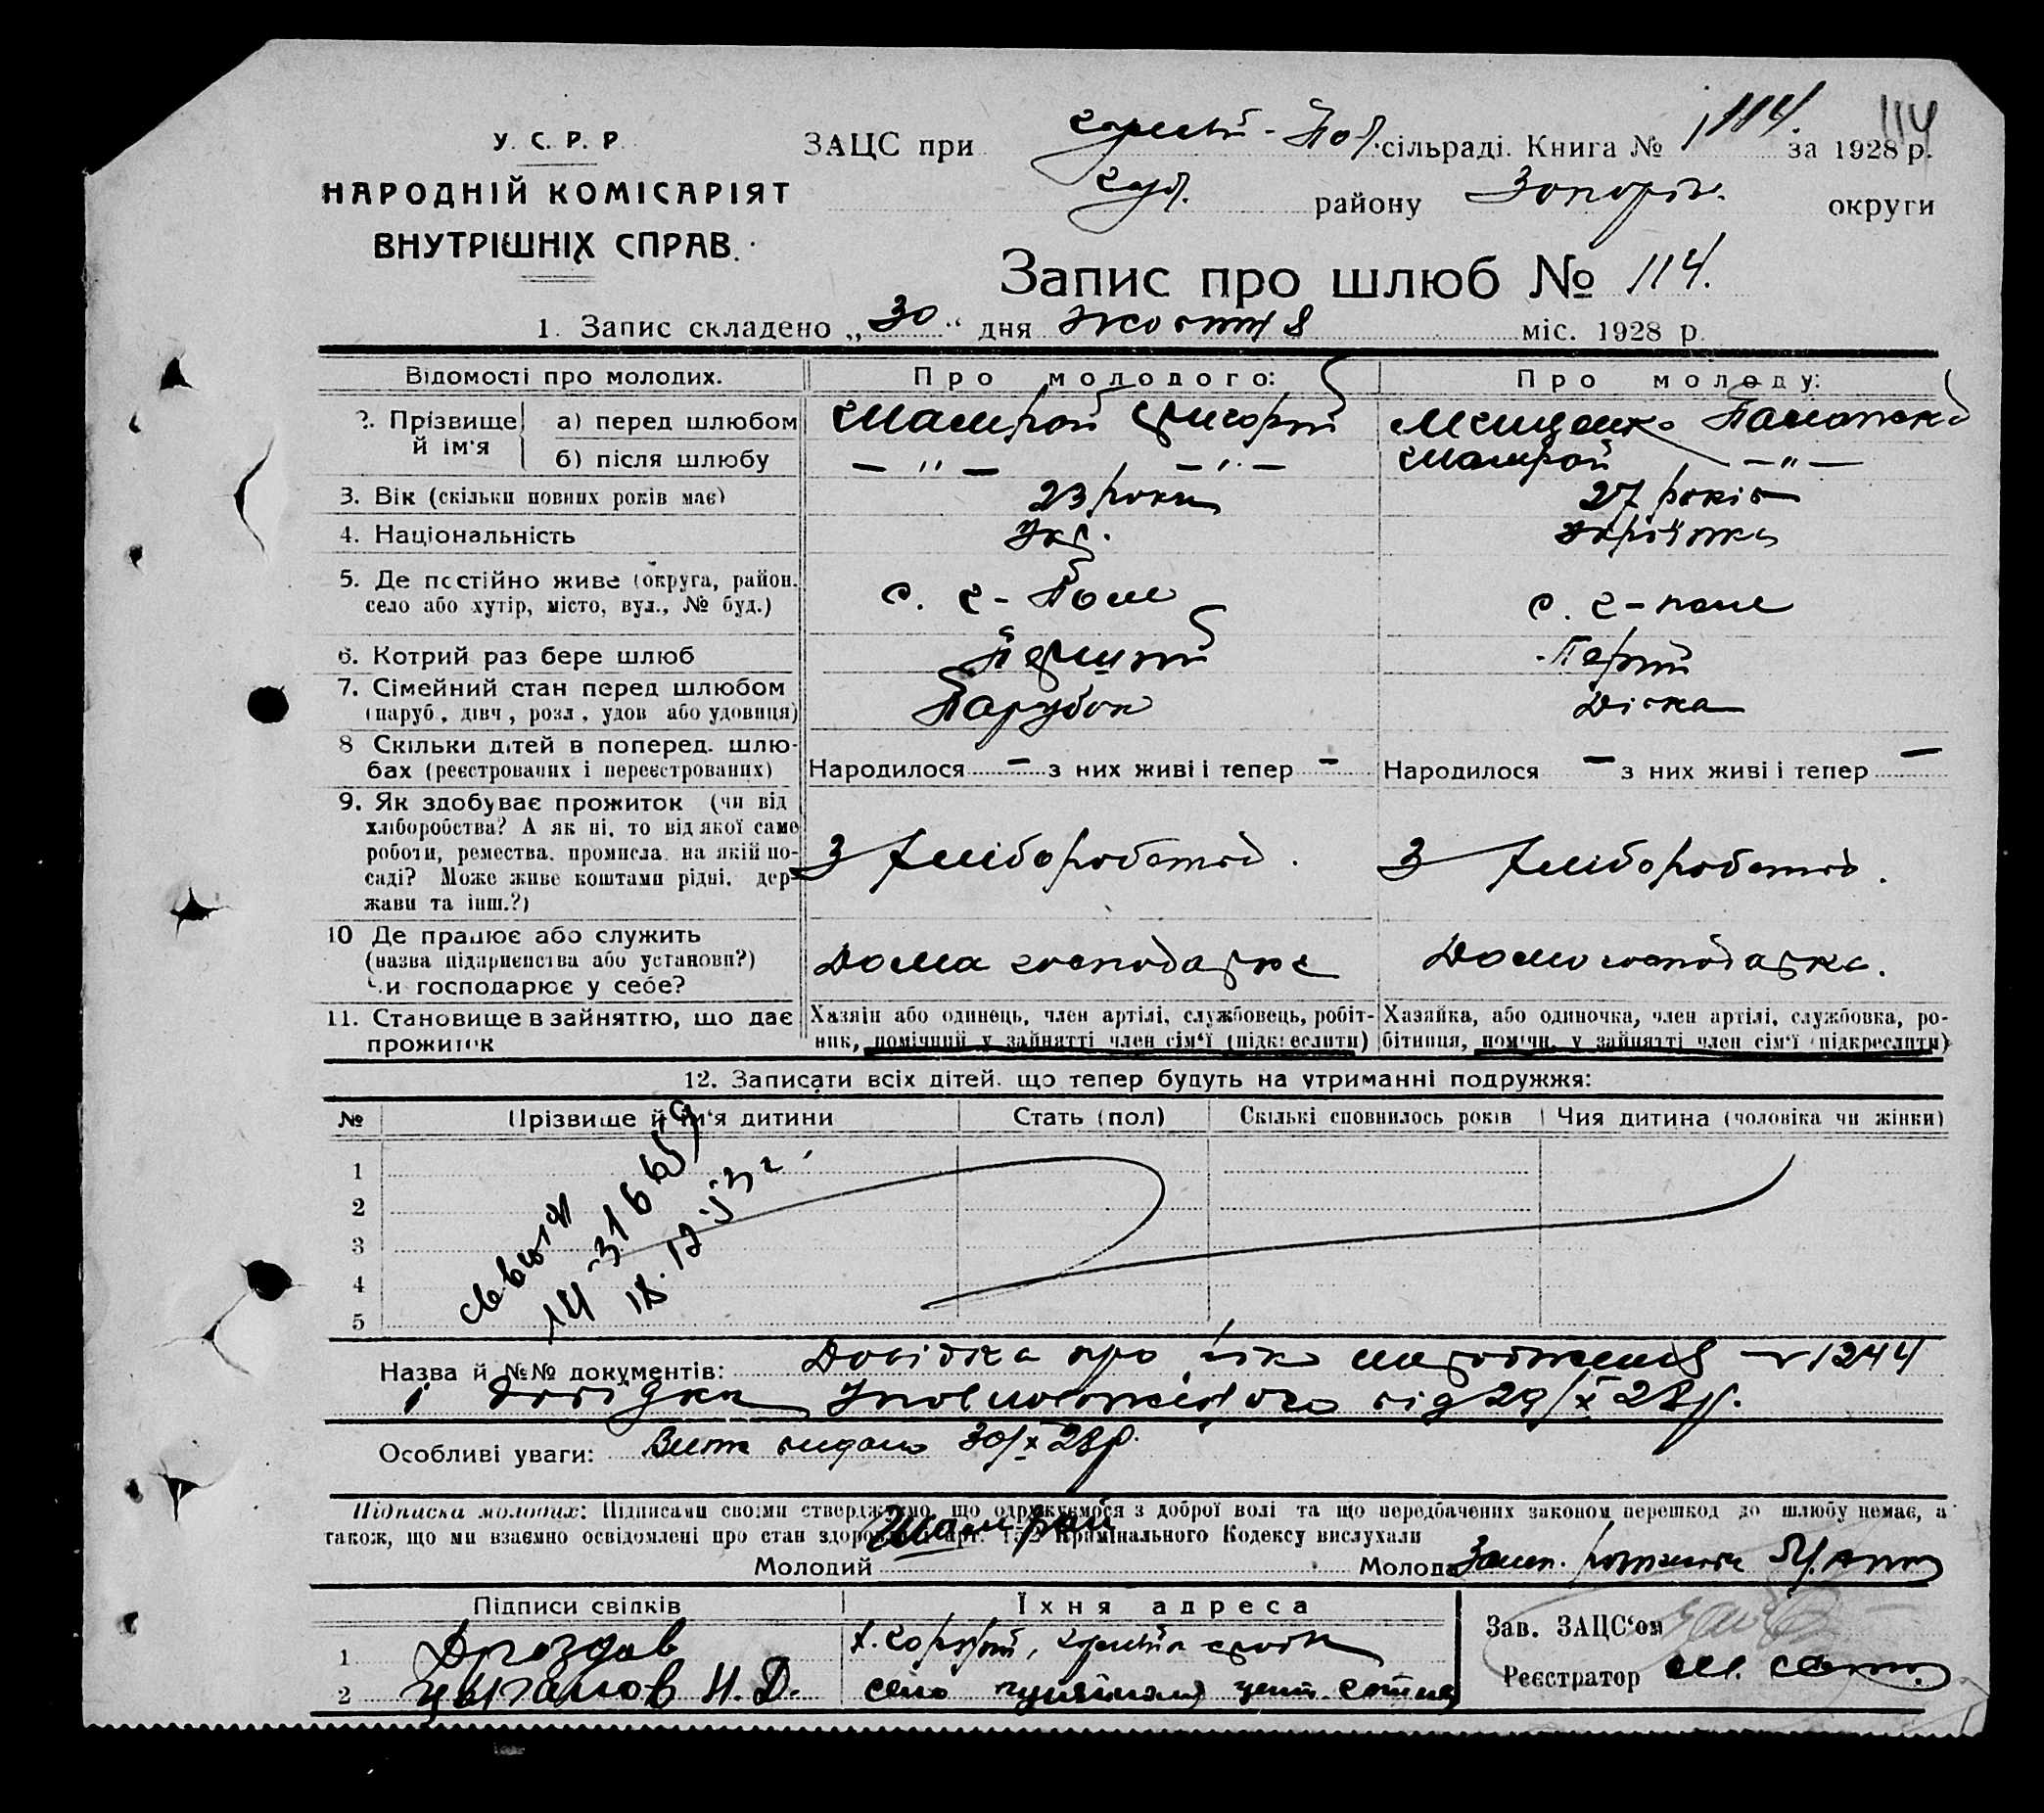 114
У. С. Р. Р.
НАРОДНІЙ КОМІСАРІЯТ
ВНУТРІШНІХ СПРАВ.
ЗАЦС при сільраді. Книга № 114. за 1928 р.
району Запоріз. округи
Запис про шлюб № 114.
1. Запис складено „30“ дня Жовтня міс. 1928 р.
Відомості про молодих. Про молодого: Про молоду:
2. Прізвище й ім'я а) перед шлюбом Шамрай Григорій Мищенко
б) після шлюбу — " — — " — Шамрай — " —
3. Вік (скільки повних років має) 23 роки 27 років
4. Національність Укр.
5. Де постійно живе (округа, район. село або хутір, місто, вул., № буд.) с. Г-Поле с. Г-поле
6. Котрий раз бере шлюб Перший
7. Сімейний стан перед шлюбом (паруб, дівч, розл, удов або удовиця) Парубок Дівка
8 Скільки дітей в поперед. шлюбах (реєстрованих і нереєстрованих) Народилося — з них живі і тепер — Народилося — з них живі і тепер —
9. Як здобуває прожиток (чи від
хліборобства? А як ні, то від якої саме
роботи, ремества, промисла, на якій по-
саді? Може живе коштами рідні, дер-
жави та інш.?) З хліборобства. З хліборобства.
10 Де працює або служить
(назва підприємства або установи?)
Чи господарює у себе? Дома господарює
11. Становище в зайняттю, що дає прожиток
Хазяїн або одинець, член артілі, службовець, робіт-
ник, помічний у зайнятті член сім'ї (підкреслити)
Хазяйка, або одиночка, член артілі, службовка, ро-
бітниця, помічн. у зайнятті член сім'ї (підкреслити)
12. Записати всіх дітей, що тепер будуть на утриманні подружжя:
№ Прізвище й ім'я дитини Стать (пол) Скількі сповнилось років Чия дитина (чоловіка чи жінки)
1
2
3
4
5
Назва й №№ документів: Довідка про 1244
і довідка від 29/X 28 р.
Особливі уваги: видано 30/X 28 р.
Підписка молодих: Підписами своїми стверджуємо, що одружуємося з доброї волі та що передбачених законом перешкод до шлюбу немає, а
також, що ми взаємно освідомлені про стан здоров'я Кримінального Кодексу вислухали
Молодий Шамрай Молода
Підписи свідків Їхня адреса Зав. ЗАЦС'ом
1 Дроздов
2 Цыганов И. Д. село
Реєстратор